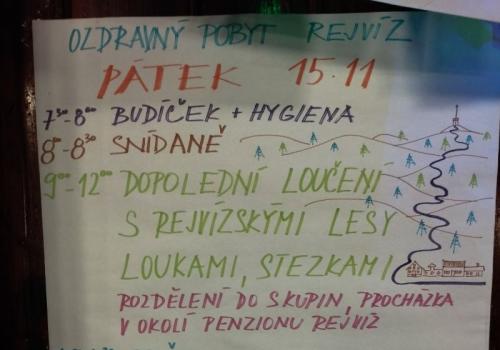 OZDRAVNÝ POBYT REJVÍZ
PÁTEK 15.11
7³⁰-8⁰⁰ BUDÍČEK + HYGIENA
8⁰⁰-8³⁰ SNÍDANĚ
9⁰⁰-12⁰⁰ DOPOLEDNÍ LOUČENÍ
S REJVÍZSKÝMI LESY
LOUKAMI, STEZKAMI
ROZDĚLENÍ DO SKUPIN, PROCHÁZKA
V OKOLÍ PENZIONU REJVÍZ